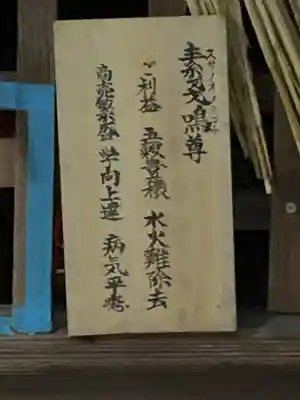 素戔鳴尊
スサノオノミコト
ご利益 五穀豊穣 水火難除去
商売繁盛 学問上達 病気平癒